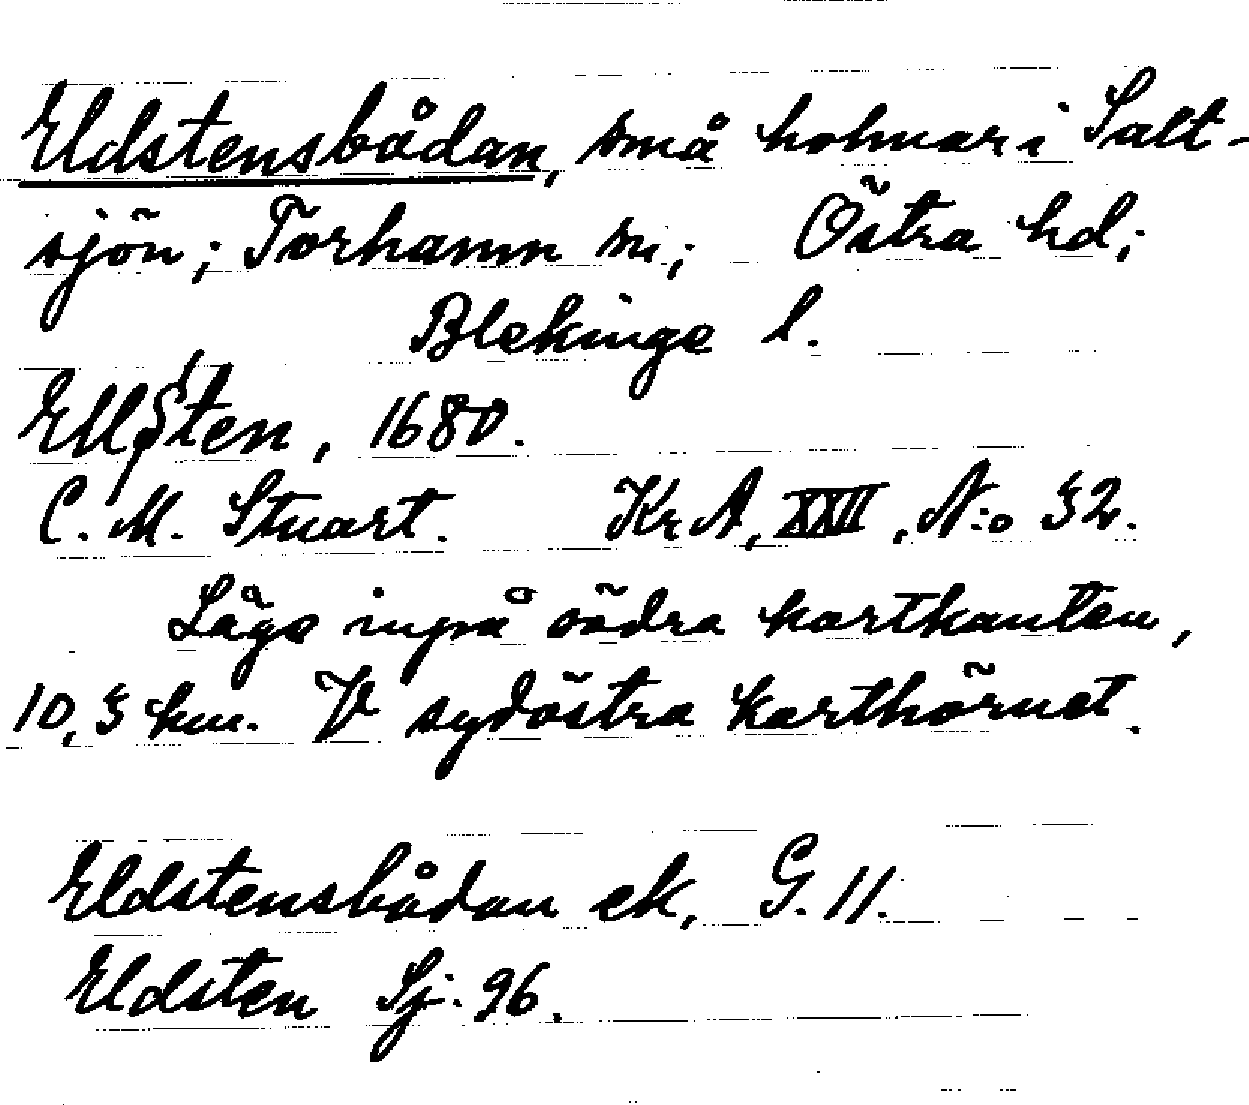 Eldstensbådan, små holmar i Salt-
sjön; Torhamn sn; Östra hd;
Blekinge l.
Ellsten, 1680.
C. M. Stuart. Kr A, XXII, N:o 32.
Läge inpå södra kartkanten,
10,3 km. V sydöstra karthörnet.
Eldstensbådan ek, G. 11.
Eldsten Sj. 96.